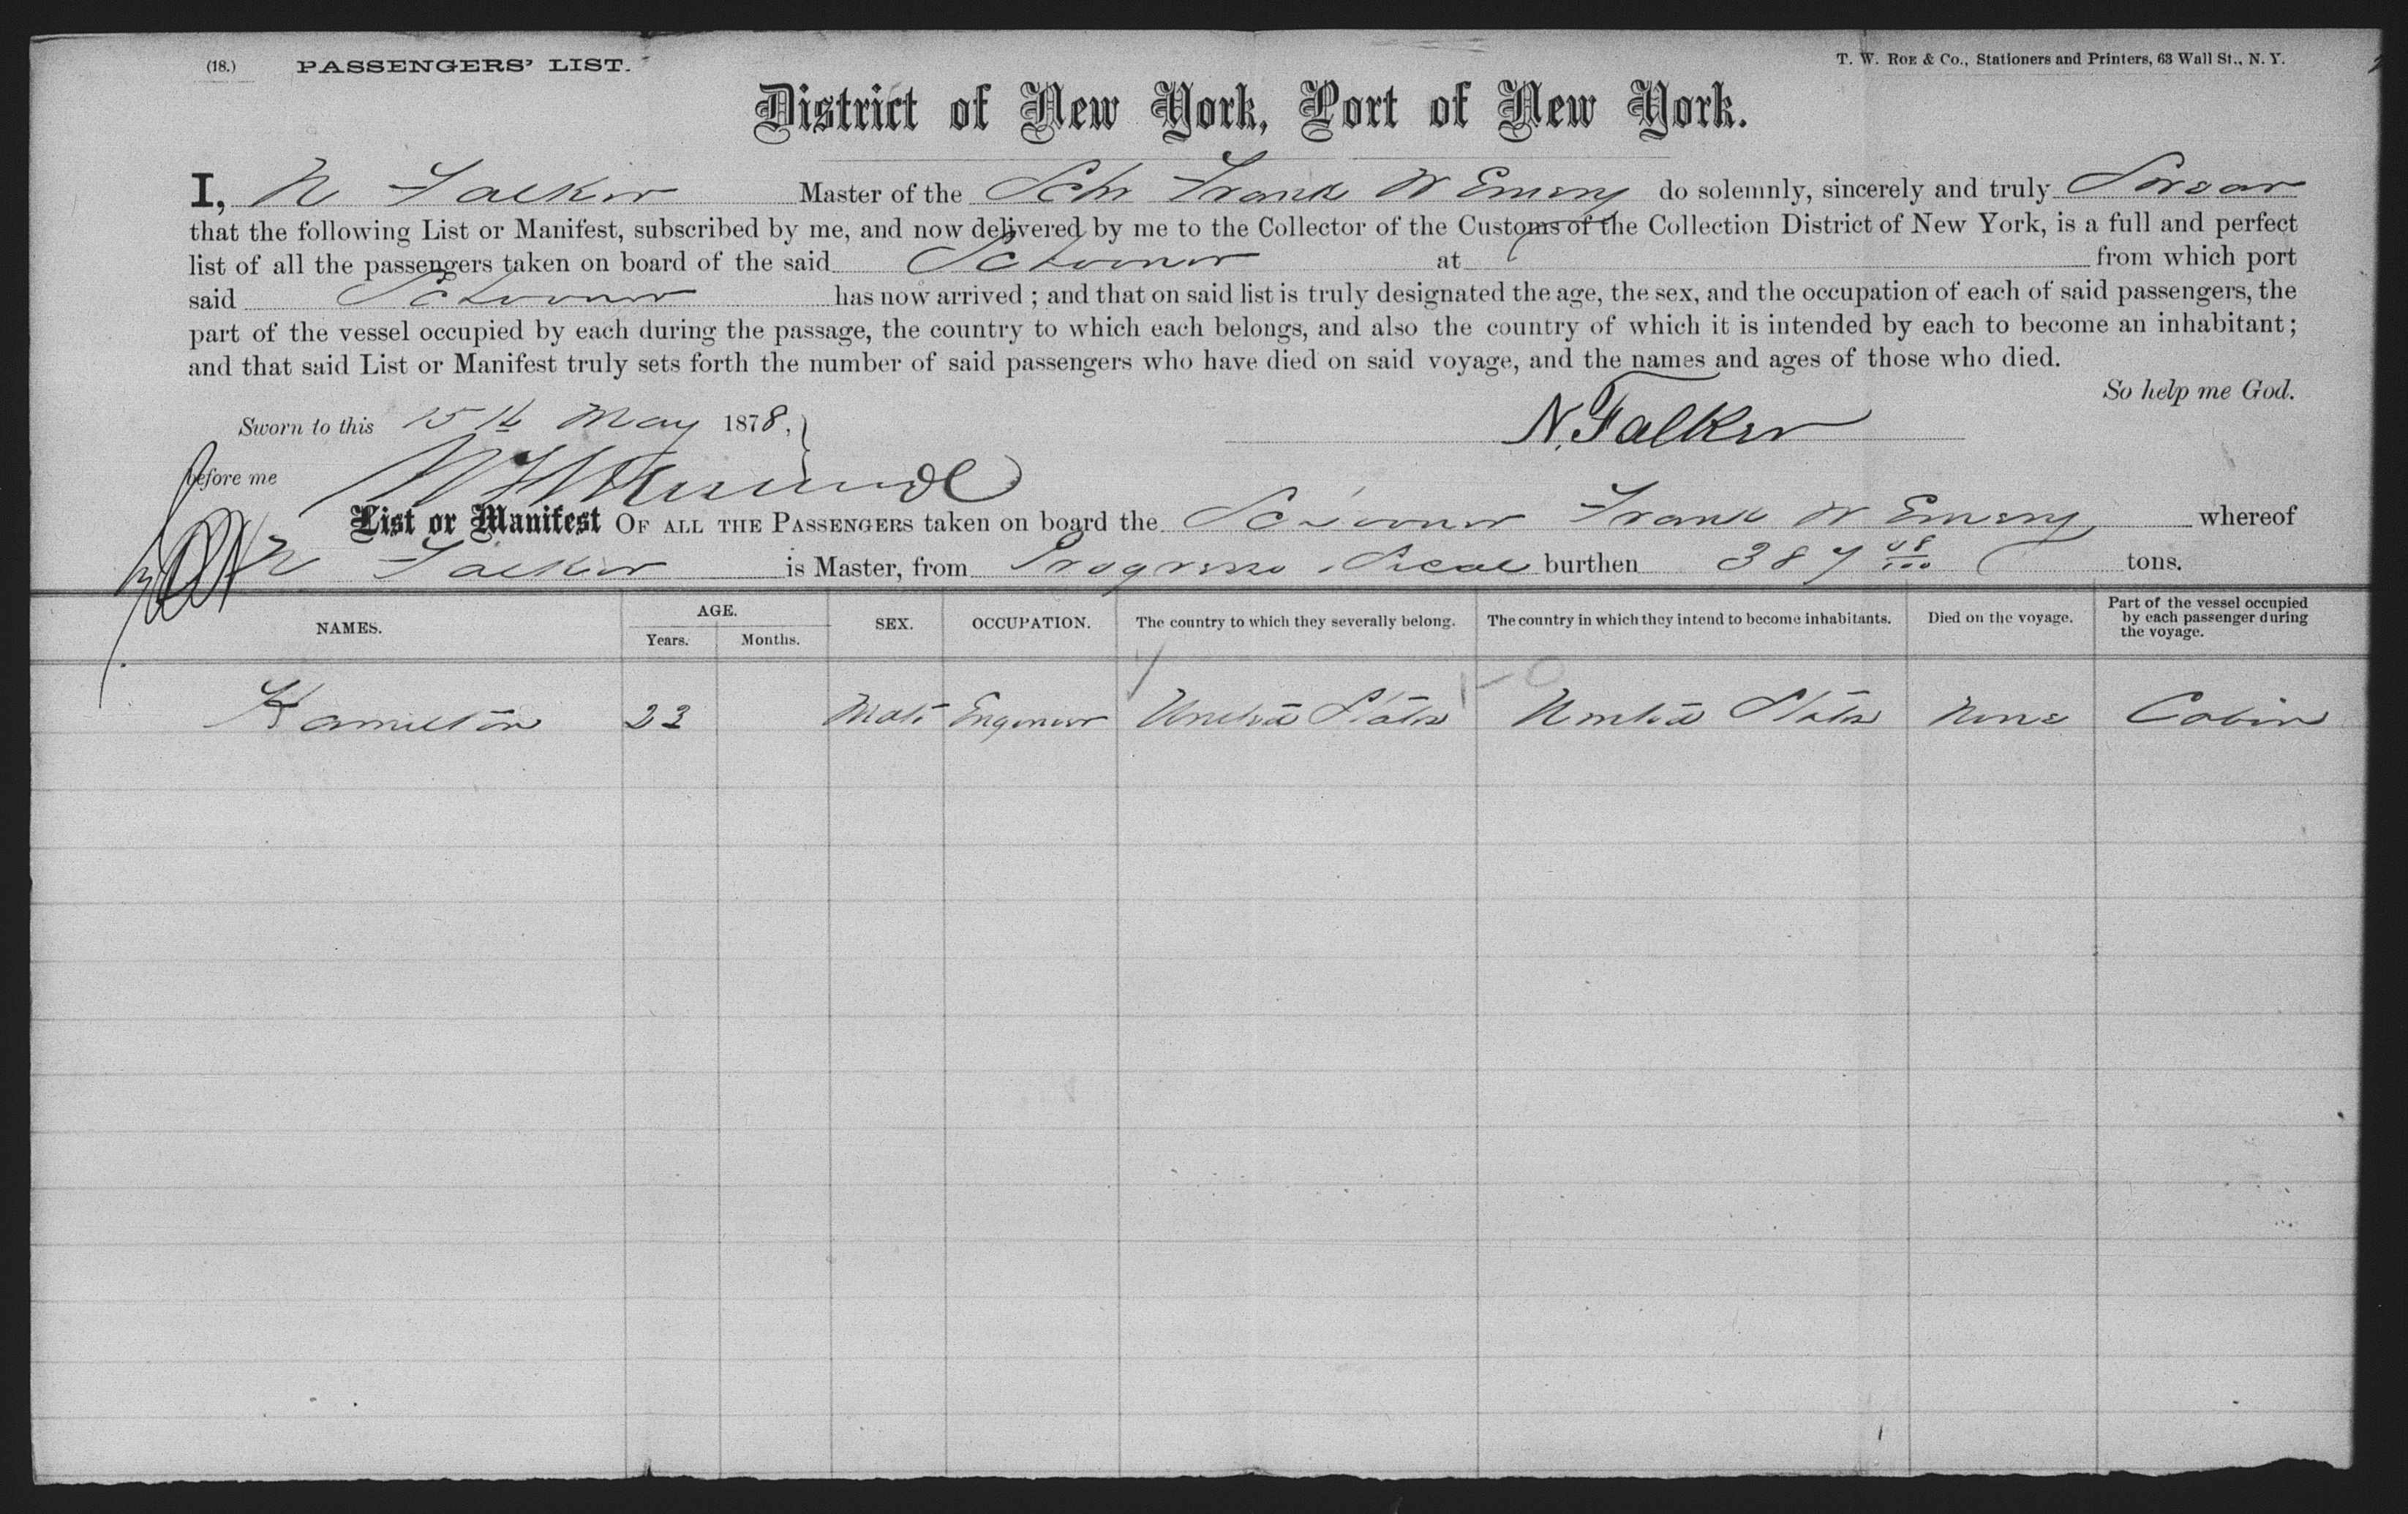 (18.) PASSENGERS' LIST. T. W. Roe & Co., Stationers and Printers, 63 Wall St., N. Y.
District of New York, Port of New York.
I, N Falker Master of the Schr Frank W Emery do solemnly, sincerely and truly Swear
that the following List or Manifest, subscribed by me, and now delivered by me to the Collector of the Customs of the Collection District of New York, is a full and perfect
list of all the passengers taken on board of the said Schooner at from which port
said Schooner has now arrived ; and that on said list is truly designated the age, the sex, and the occupation of each of said passengers, the
part of the vessel occupied by each during the passage, the country to which each belongs, and also the country of which it is intended by each to become an inhabitant ;
and that said List or Manifest truly sets forth the number of said passengers who have died on said voyage, and the names and ages of those who died.
So help me God.
Sworn to this 15th May 1878, N. Falker
before me
List or Manifest OF ALL THE PASSENGERS taken on board the Schooner Frank W Emery whereof
N Falker is Master, from Progreso Sical burthen 387 48/100 tons.
NAMES. AGE. Years. Months. SEX. OCCUPATION. The country to which they severally belong. The country in which they intend to become inhabitants. Died on the voyage. Part of the vessel occupied by each passenger during the voyage.
Hamilton 23 Male Engineer United States United States None Cabin